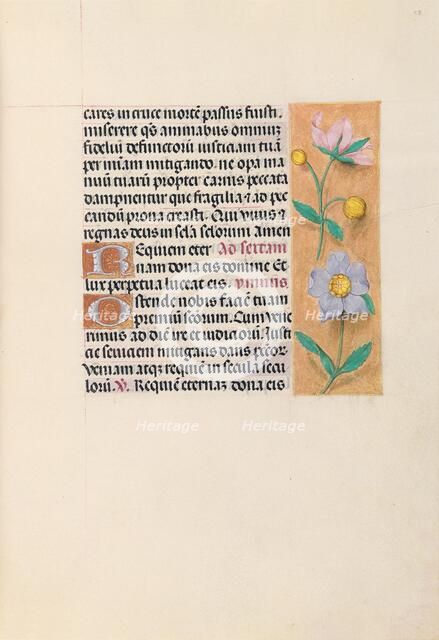 cares in cruce morte passus fuisti.
miserere qs animabus omnium
fidelium defunctorū iusticiam tuā
per iniam mitigando. ne opa ma
nuū tuarū propter carnis peccata
dampnentur que fragilia & ad pec
candū prona creasti. Qui viuis &
regnas deus in sela selorum. Amen
Requiem eter Ad sextam
nam dona eis domine Et
lux perpetua luceat eis. ymnus.
Ostende nobis facie tuam
premiū seorum. Cum vene
rimus ad die ire et iudicij. Iusti
cie seuiciem mitigans dans peccor
veniam atqz requie in secula secu
lorū. V. Requie eternaz dona eis
Heritage
Heritage
Heritage
Heritage
Heritage
Heritage